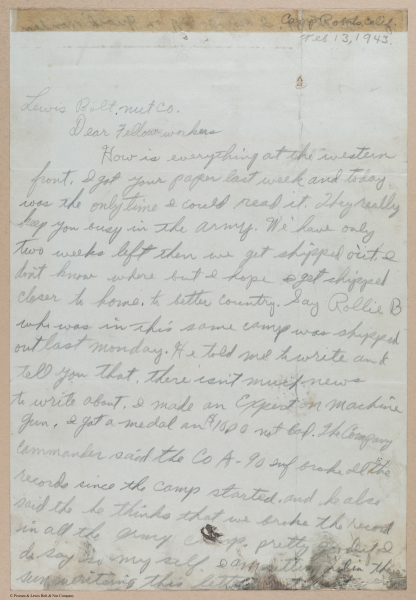 Camp Roberts, Calif.
Feb 13, 1943.
Lewis Bolt, nut Co.
Dear Fellow workers
How is everything at the western
front. I got your paper last week and today
was the only time I could read it. They really
keep you busy in the army. We have only
two weeks left then we get shipped out. I
don't know where but I hope I get shipped
closer to home, to better country. Say Rollie B
who was in this same camp was shipped
out last monday. He told me to write and
tell you that. there isn't much news
to write about, I made an Expert on machine
gun. I got a medal and $10.00 not bad. The Company
commander said the Co A-90 inf broke all the
records since the camp started, and he also
said the he thinks that we broke the record
in all the army camp. pretty good I
do say so my self. I am
now writing this letter
© Preston & Lewis Bolt & Nut Company